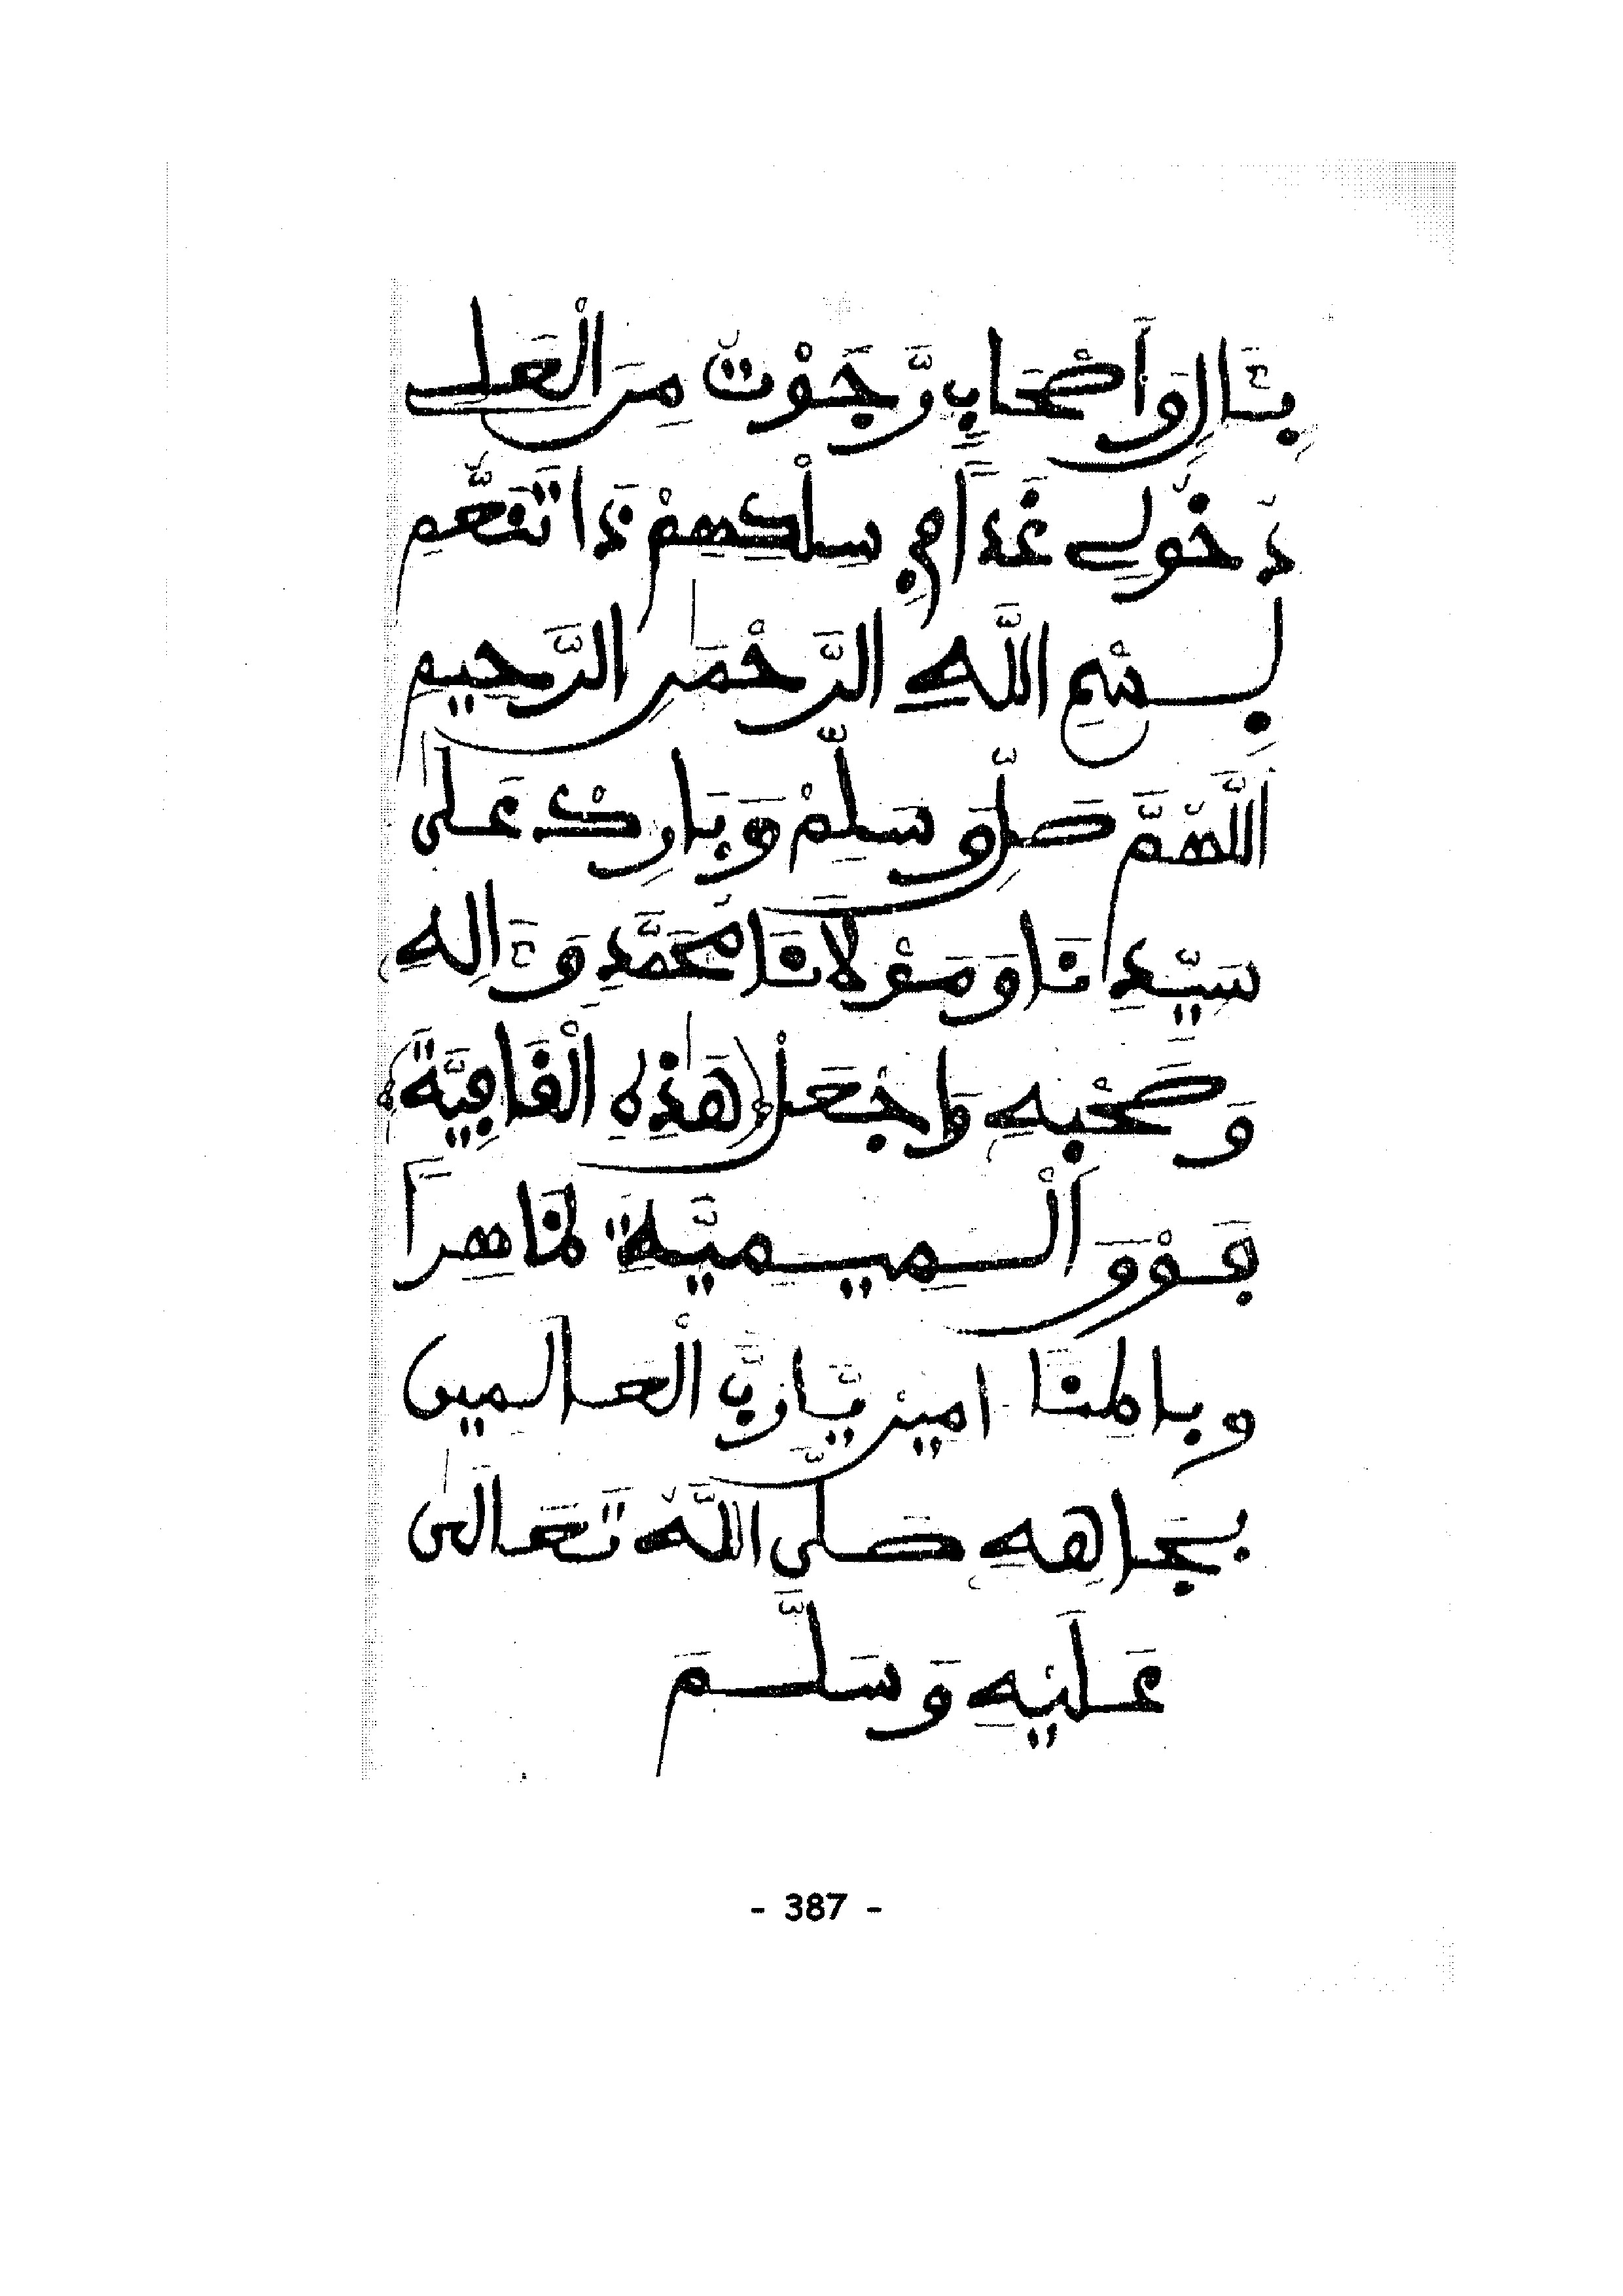 بِـَٔالٍ وَأَصْحَابٍ رَّجَوْتُ مِنَ الْعَلِے
دُخُولِے غَدًا فِے سِلْكِهِمْ ذَا تَنَعُّمِ
بِسْمِ اللَّهِ الرَّحْمَٰنِ الرَّحِيمِ
اللَّهُمَّ صَلِّ وَسَلِّمْ وَبَارِكْ عَلَىٰ
سَيِّدِنَا وَمَوْلَانَا مُحَمَّدٍ وَءَالِهِ
وَصَحْبِهِ وَاجْعَلْ هَٰذِهِ الْقَافِيَّةَ
فَوْقَ الْمِيمِيَّةِ ظَاهِرًا
وَبَاطِنًا ءَامِينَ يَّا رَبَّ الْعَالَمِين
بِجَاهِهِ صَلَّى اللَّهُ تَعَالَىٰ
عَلَيْهِ وَسَلَّمَ
- 387 -